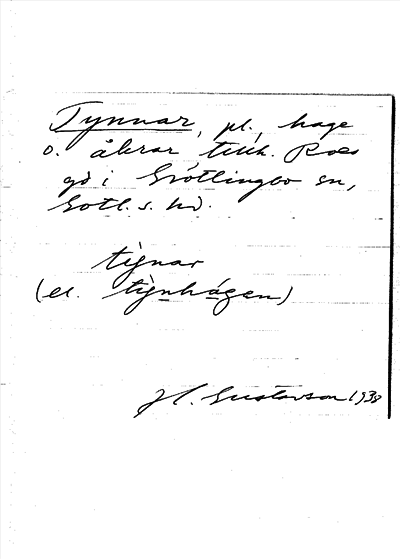 Tynnar, pl., hage
o. åkrar, tillh. Roes
gd i Grötlingbo sn,
Gotl. s. hd.
tynar
(el. tynhagen)
H. Gustavson 1938